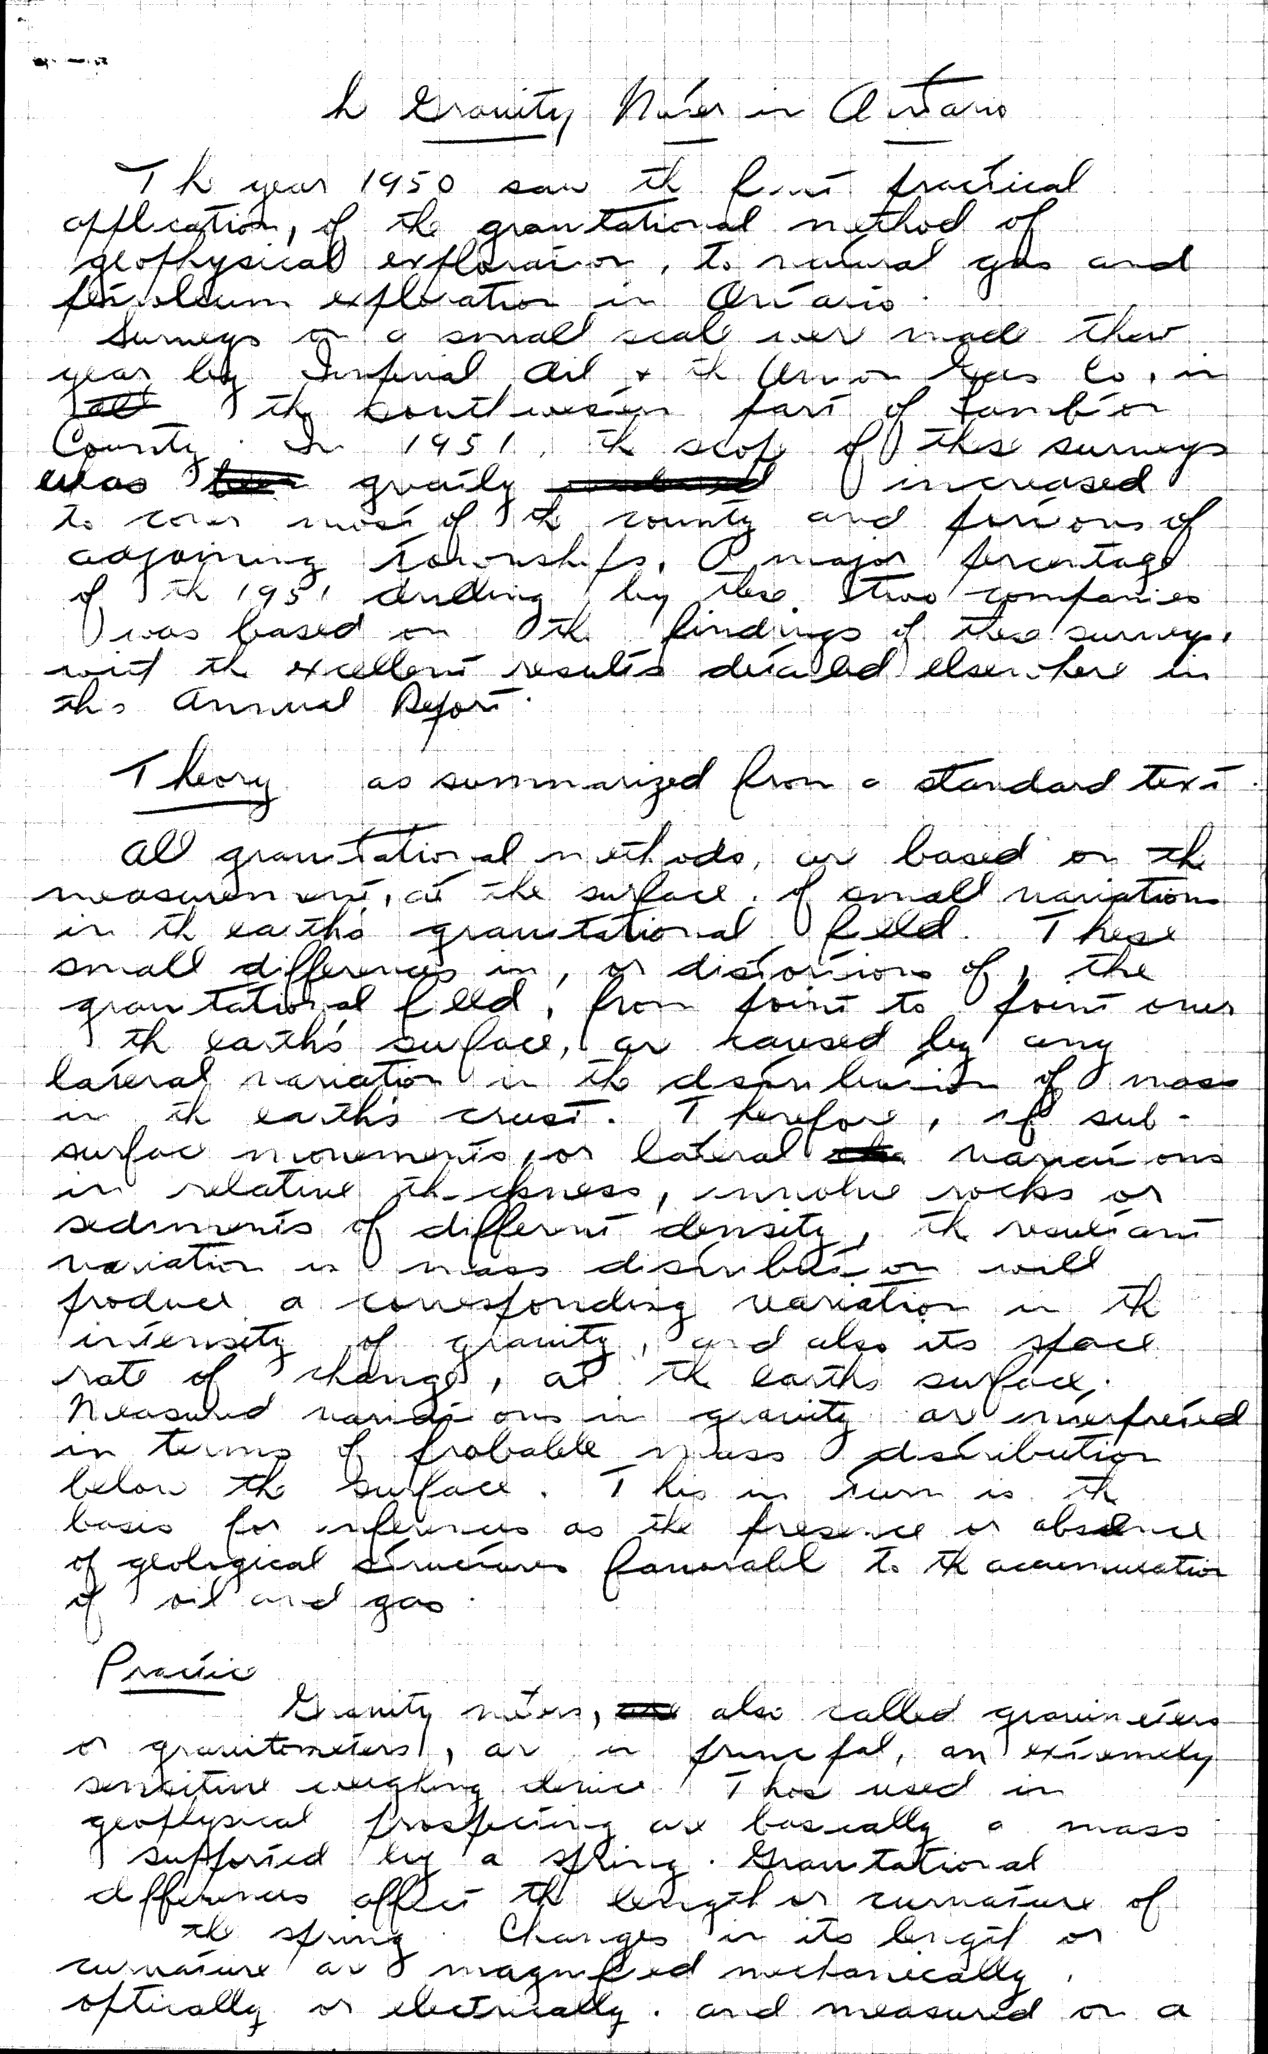 h Gravity Meter in Ontario
Th year 1950 saw th first practical
application, of the gravitational method of
geophysical exploration, to natural gas and
petroleum exploration in Ontario.
Surveys on a small scale were made that
year by Imperial Oil & th Union Gas Co, in
th southwestern part of Lambton
County. In 1951, th scope of these surveys
was greatly increased
to cover most of th county and portions of
adjoining townships. A major percentage
of th 1951 drilling by these two companies
was based on th findings of these surveys,
with th excellent results detailed elsewhere in
this Annual Report.
Theory as summarized from a standard text.
All gravitational methods, are based on th
measurement, at the surface, of small variations
in th earth's gravitational field. These
small differences in, or distortions of, the
gravitational field, from point to point over
th earth's surface, are caused by any
lateral variation in th distribution of mass
in th earth's crust. Therefore, if sub-
surface movements, or lateral variations
in relative thickness, involve rocks or
sediments of different density, th resultant
variation in mass distribution will
produce a corresponding variation in th
intensity of gravity, and also its space
rate of change, at th earths surface.
Measured variations in gravity are interpreted
in terms of probable mass distribution
below the surface. This in turn is th
basis for inferences as the presence or absence
of geological structures favorable to th accumulation
of oil and gas.
Practice
Gravity meters, also called gravimeters
or gravitometers, are in principal, an extremely
sensitive weighing device. Those used in
geophysical prospecting are basically a mass
supported by a spring. Gravitational
differences affect th length or curvature of
th spring. Changes in its length or
curvature are magnified mechanically,
optically or electrically, and measured on a